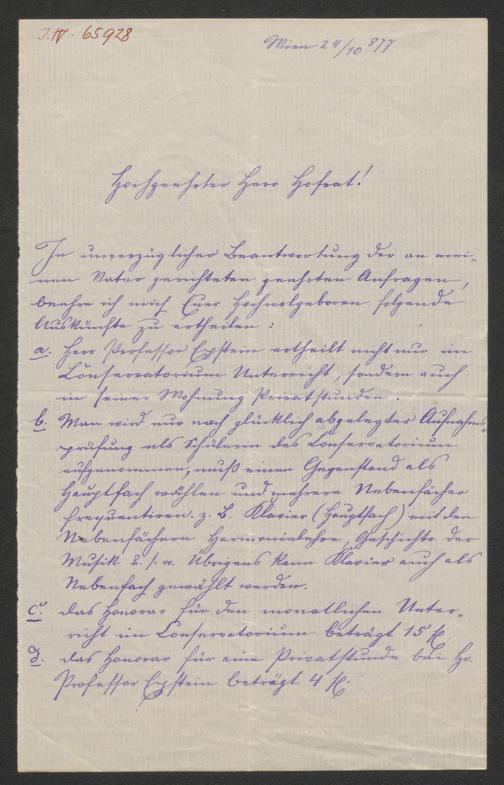 J.N. 65928
Wien 24/10 877
Hochgeehrter Herr Hofrat!
In unverzüglicher Beantwortung der an mei-
nen Vater gerichteten geehrten Anfragen,
beehre ich mich Euer Hochwolgeboren folgende
Auskünfte zu ertheilen:
a. Herr Professor Epstein ertheilt nicht nur im
Conservatorium Unterricht, sondern auch
in seiner Wohnung Privatstunden.
b. Man wird nur nach glücklich abgelegter Aufnahms-
prüfung als Schülerin des Conservatoriums
aufgenommen, muß einen Gegenstand als
Hauptfach wählen und mehrere Nebenfächer
frequentiren. z. B. Klavier (Hauptfach) mit den
Nebenfächern Harmonielehre, Geschichte der
Musik u. s. w. Übrigens kann Klavier auch als
Nebenfach gewählt werden.
c. das Honorar für den monatlichen Unter-
richt im Conservatorium beträgt 15 fl.
d. das Honorar für eine Privatstunde bei Hr.
Professor Epstein beträgt 4 fl.